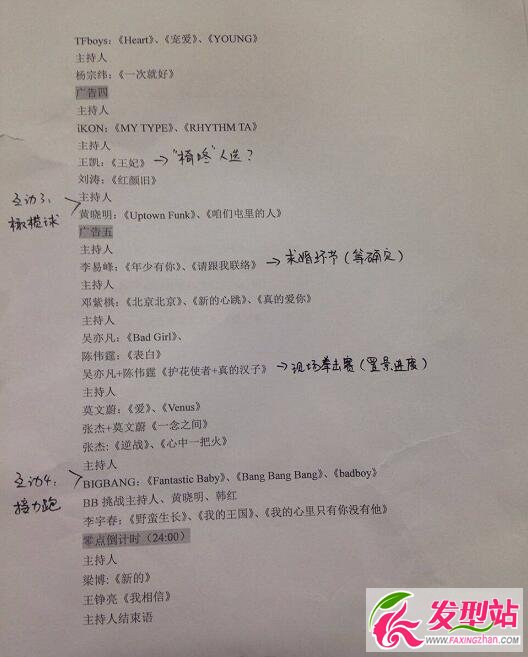 TFboys：《Heart》、《宠爱》、《YOUNG》
主持人
杨宗纬：《一次就好》
广告四
主持人
iKON：《MY TYPE》、《RHYTHM TA》
主持人
王凯：《王妃》 → "椅咚"人选？
刘涛：《红颜旧》
互动3： 主持人
橄榄球 黄晓明：《Uptown Funk》、《咱们屯里的人》
广告五
主持人
李易峰：《年少有你》、《请跟我联络》 → 求婚环节（等确定）
主持人
邓紫棋：《北京北京》、《新的心跳》、《真的爱你》
主持人
吴亦凡：《Bad Girl》、
陈伟霆：《表白》
吴亦凡+陈伟霆《护花使者+真的汉子》 → 现场拳击赛（置景、进度）
主持人
莫文蔚：《爱》、《Venus》
张杰+莫文蔚《一念之间》
张杰：《逆战》、《心中一把火》
主持人
互动4： BIGBANG：《Fantastic Baby》、《Bang Bang Bang》、《badboy》
接力跑 BB 挑战主持人、黄晓明、韩红
李宇春：《野蛮生长》、《我的王国》、《我的心里只有你没有他》
零点倒计时（24:00）
主持人
梁博：《新的》
王铮亮《我相信》
主持人结束语
发型站
WWW.FAXINGZHAN.COM